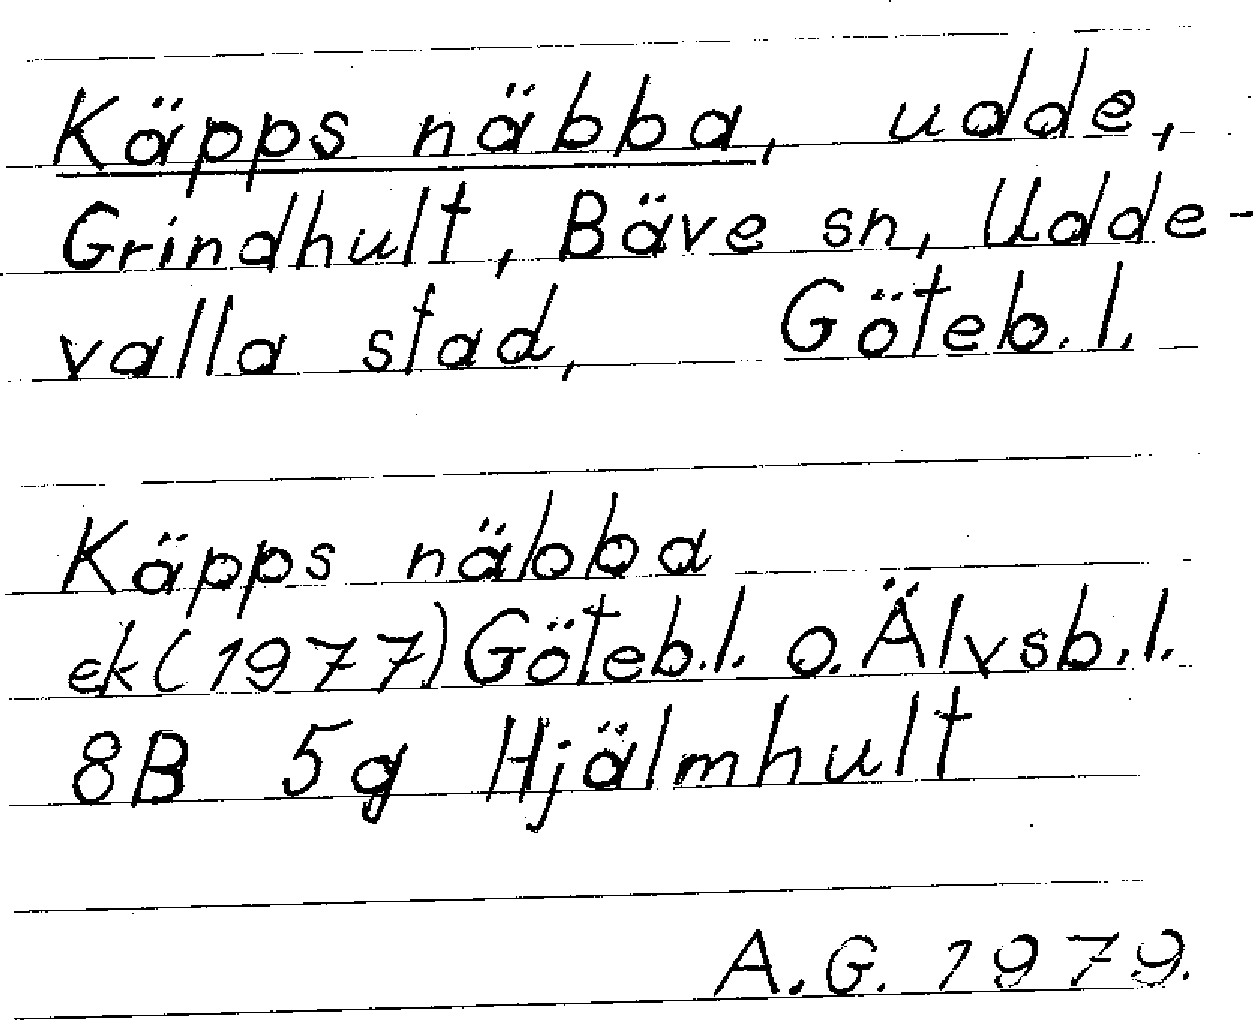 Käpps näbba, udde,
Grindhult, Bäve sn, Udde-
valla stad, Göteb. l.
Käpps näbba
ek (1977) Göteb. l. o. Älvsb. l.
8B 5g Hjälmhult
A. G. 1979.